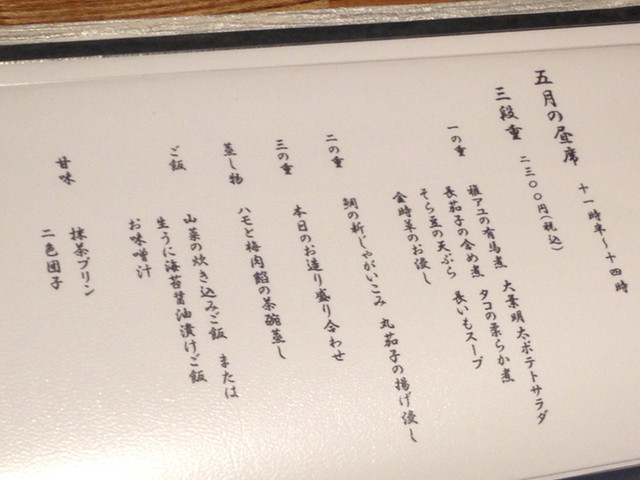 五月の昼席
十一時半～十四時
三段重 二三〇〇円(税込)
一の重
稚アユの有馬煮 大葉明太ポテトサラダ
長茄子の含め煮 タコの柔らか煮
そら豆の天ぷら 長いもスープ
金時草のお浸し
二の重
鯛の新じゃがいこみ 丸茄子の揚げ浸し
三の重
本日のお造り盛り合わせ
蒸し物
ハモと梅肉餡の茶碗蒸し
ご飯
山菜の炊き込みご飯 または
生うに海苔醤油漬けご飯
お味噌汁
甘味
抹茶プリン
二色団子